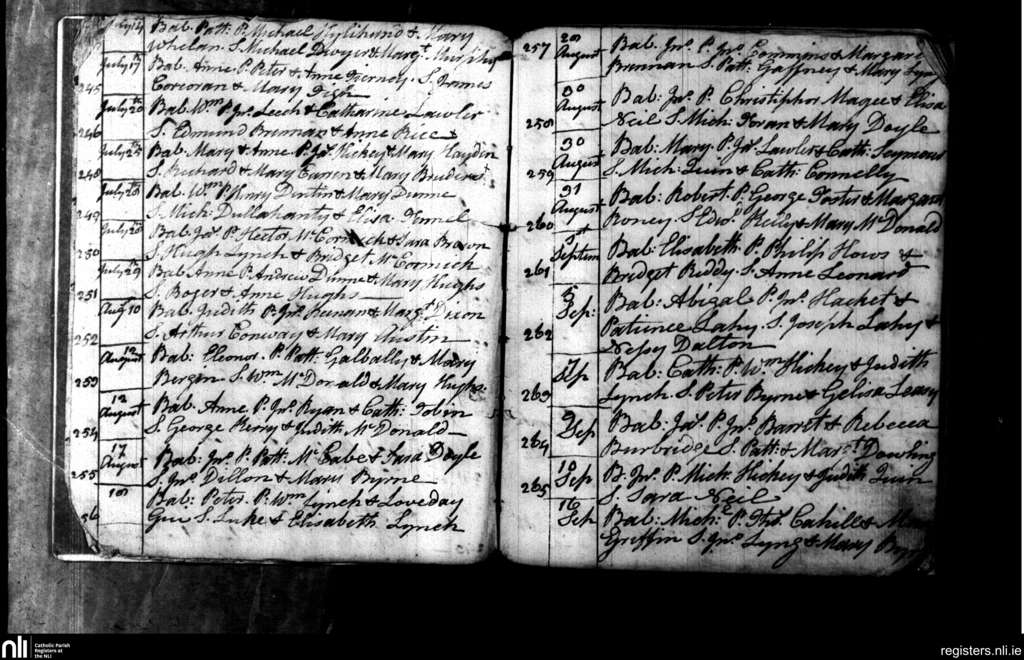 July 14 Bab. Patt: P. Michael & Mary
Whelan S. Michael Dwyer & Margt Murphy
July 17 Bab. Anne P. Peter & Anne S. James
245 Corcoran & Mary
July 20 Bab Wm P. Jn. Leech & Catharine Lawler
246 S. Edmund Brennan & Anne Rice
July 25 Bab. Mary & Anne P. Jas. Hickey & Mary Haydin
248 S. Richard & Mary Curren & Mary
July 28 Bab. Wm P. Henry Dentin & Mary Dunne
249 S. Mich: Dullahanty & Elisa
July 28 Bab. Jas. P. Hector McCormick & Sara Brown
250 S. Hugh Lynch & Bridget McCormick
July 29 Bab. Anne P. Andrew Dunne & Mary Hughs
251 S. Roger & Anne Hughs
Aug 10 Bab. Judith P. Jno. Keenan & Margt Dixon
252 S. Arthur Conway & Mary Austin
August 12 Bab: Eleonor. P. Patt: Galbally & Mary
253 Bergin S. Wm McDonald & Mary Hughs
12 August Bab. Anne. P. Jno. Ryan & Cath: Tobin
254 S. George Kerry & Judith McDonald
17 August Bab: Jno. P. Patt: McCabe & Sara Doyle
255 S. Jno. Dillon & Mary Byrne
Bab: Peter. P. Wm Lynch & Loveday
56 S. Luke & Elisabeth Lynch
257 August Bab. Jno. P. Jno. Commins & Margare
Brennan S. Patt: Gaffney & Mary
30 August Bab: Jas. P. Christiphor Magee & Elisa
258 Neil S. Mich: Foran & Mary Doyle
30 August Bab: Mary. P. Jas. Lawler & Cath: Seymour
259 S. Mich: Quin & Cath: Connelly
31 August Bab: Robert. P. George Foster & Margaret
260 Roney S. Edwd & Mary McDonald
1st Septem Bab: Elisabeth P. Philip Hows &
261 Bridget Reddy. S. Anne Leonard
5 Sep: Bab: Abigal P. Jno. Hacket &
262 Patience Lahy. S. Joseph Lahy &
Nessy Dalton
Sep Bab: Cath: P. Wm Hickey & Judith
263 Lynch S. Peter Byrne & Gelisa Leary
9 Sep Bab: Jas. P. Jno. Barret & Rebecca
264 Burbridge S. Patt: & Margt Dowling
10 Sep B. Jno. P. Mich. Hickey & Judith Quin
265 S. Sara Neil
16 Sep Bab: Mich: P. Thos. Cahill &
Griffin S. Jno. Lyng & Mary
nli
Catholic Parish
Registers at
the NLI
registers.nli.ie